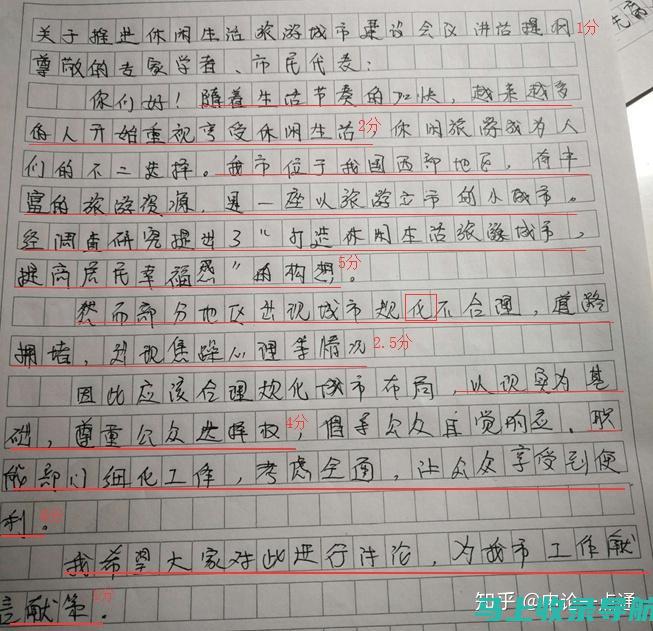 关于推进休闲生活旅游城市建设会议讲话提纲 1分
尊敬的专家学者、市民代表：
你们好！随着生活节奏的加快，越来越多
的人开始重视享受休闲生活 2分 休闲旅游成为人
们的不二选择。我市位于我国西部地区，有丰
富的旅游资源，是一座以旅游立市的小城市。
经调查研究提出了“打造休闲生活旅游城市，
提高居民幸福感”的构想。 5分
然而部分地区出现城市规化不合理，道路
拥堵，出现集群心理等情况 2.5分
因此应该合理规化城市布局，以现实为基
础，尊重公众选择权 4分，倡导公众自觉响应。职
能部门细化工作，考虑全通，让公众享受到便
利。
我希望大家对此进行讨论，为我市工作献
言献策。 1分
知乎
马上收录导航